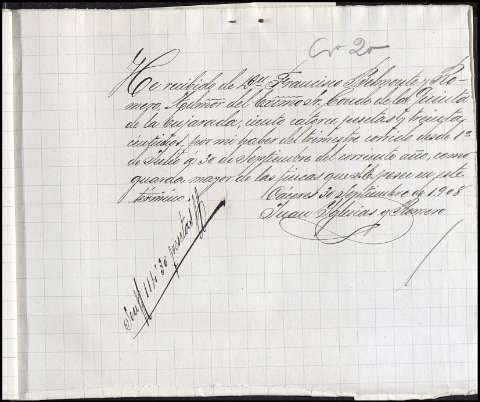 Cr 20
He recibido de Dn Francisco Belmonte y Ro-
mero, Admor del Excmo Sr. Conde de la Quinta
de la Enjarada, ciento catorce pesetas y treinta
centimos, por mi haber del trimestre corrido desde 1º
de Julio a 30 de Septiembre del corriente año, como
guarda mayor de las fincas que S.E. posee en este
término.
Cáceres 30 Septiembre de 1908
Juan Iglesias y Romero
Son 114,30 pesetas